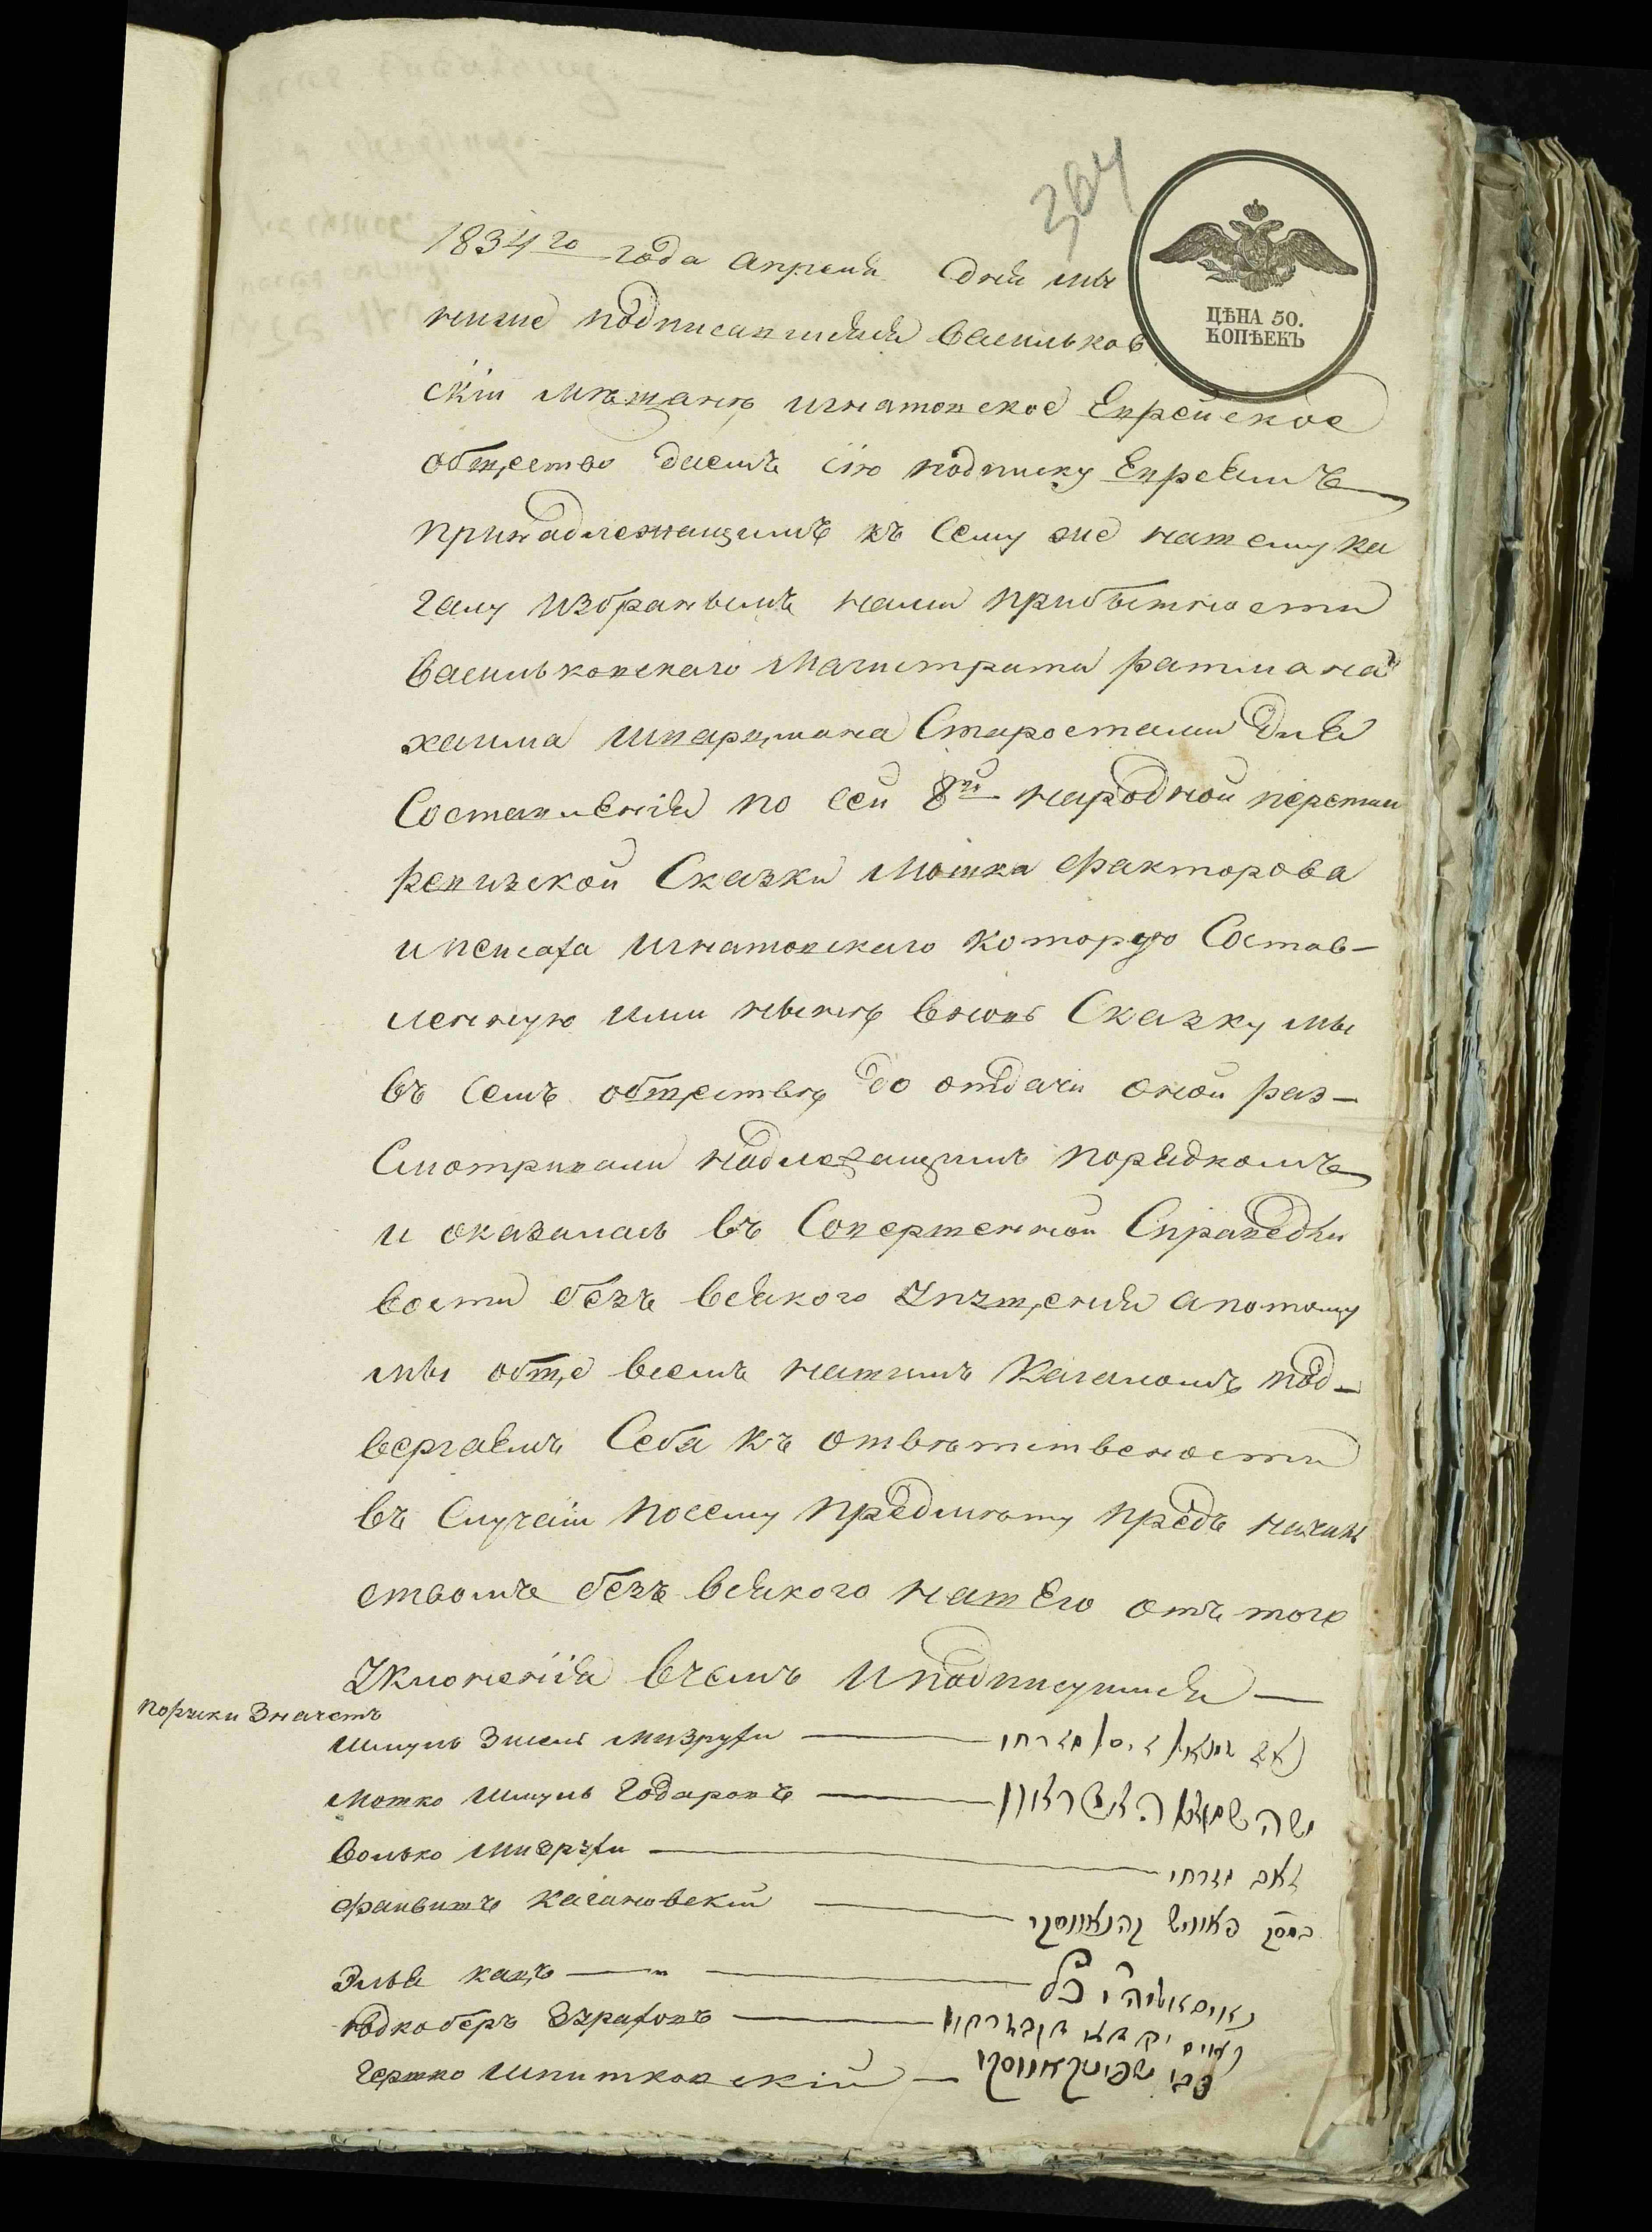 364
ЦѢНА 50.
КОПѢЕКЪ
1834го года апреля дня мы
ниже подписавшияся васильков
скіи мѣщанѣ игнатовское Еврейское
общество даемъ сію подписку Евреямъ
принадлежащимъ къ сему же нашему ка
галу избранымъ нами прибытности
васильковскаго магистрата ратмана
хаима шварцмана Старостами для
Составленія по сей 8й народной переписи
ревизской Сказки мошка факторова
и игнатовскаго которую Состав–
ленную ими нынѣ вновь Сказку мы
въ семъ обществѣ до отдачи оной раз–
Сматривали надлежащимъ порядкомъ
и оказалась въ Совершенной Справедли
вости безъ всякого упущения апотому
мы обще всемъ нашимъ Кагаломъ под–
вергаемъ Себя къ отвѣтствености
въ Случаи посему предмѣту предъ началь
ствомъ безъ всякого нашего отъ того
Уклоненія вчемъ и подписуимся —
Поруски Значетъ
Шмуль Зисель мизрухи —
Мошко Шмуль Годаровъ —
Волько мизрухи — מזרחי
Файвишъ Кагановский — פאוויש קהנאווסקי
Элья кацъ — כץ
Юдко беръ —
Гершко Шпитковский — צבי שפיטקאווסקי